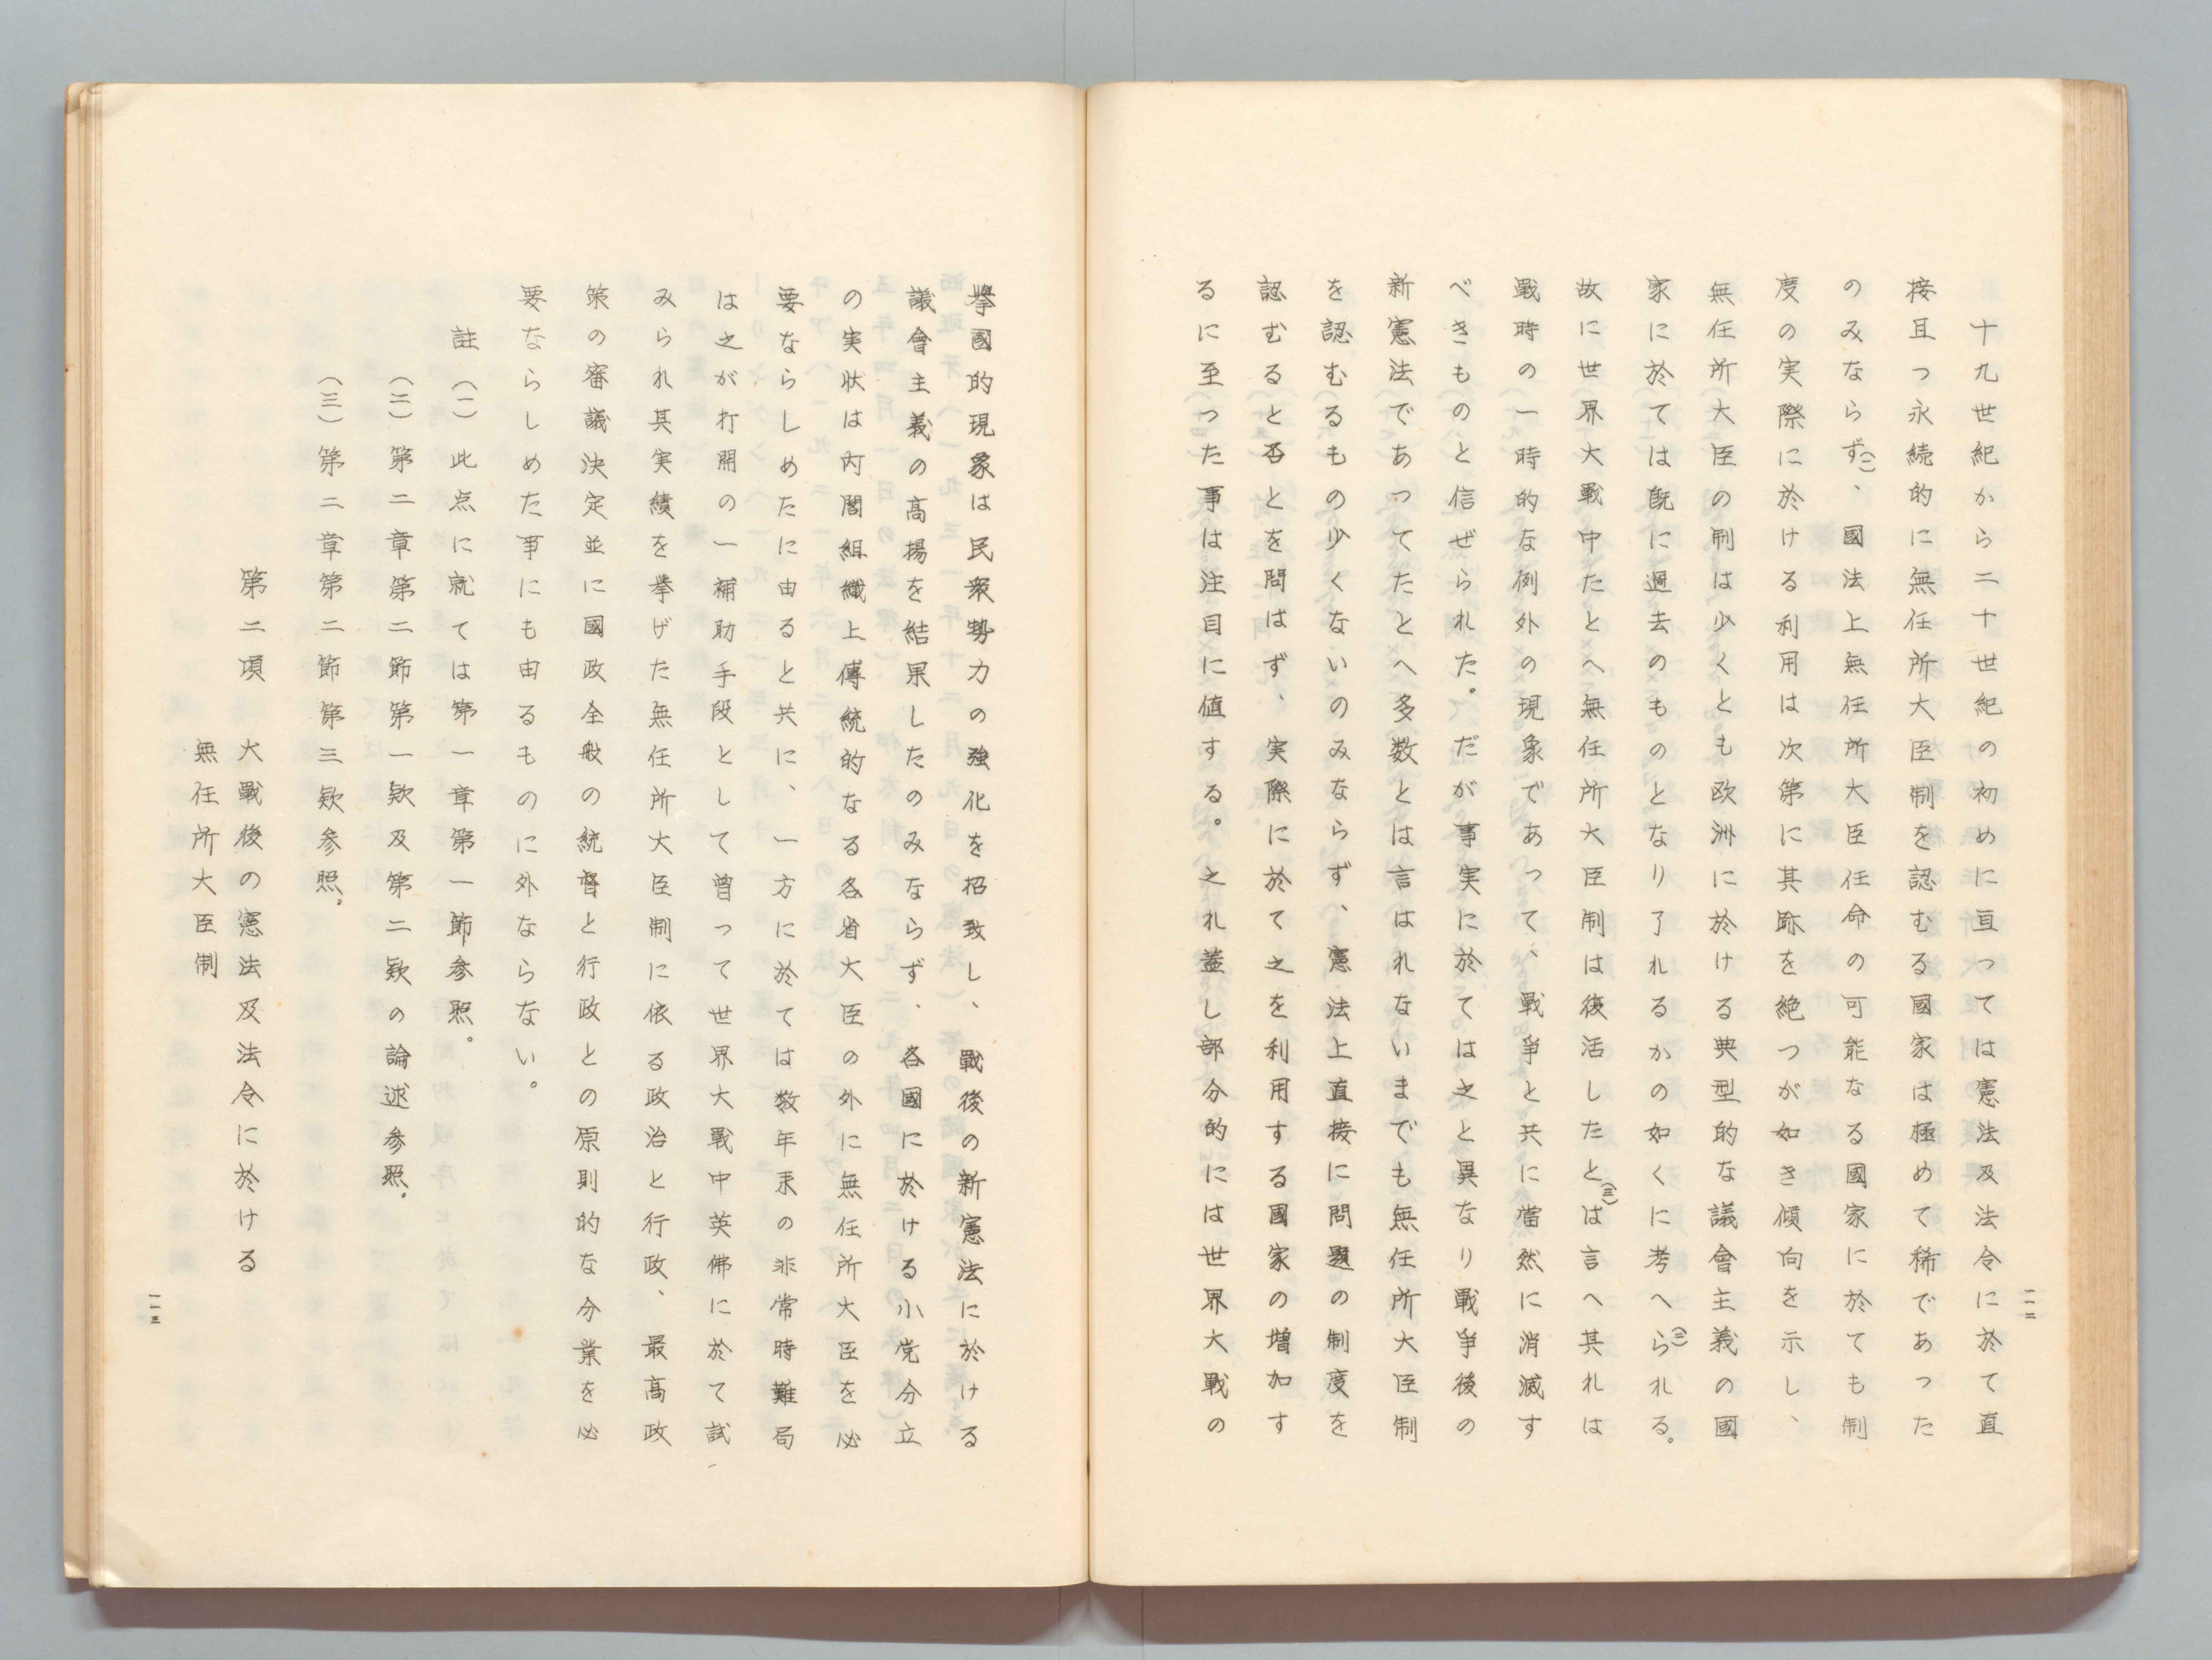 一一二
十九世紀から二十世紀の初めに亘っては憲法及法令に於て直
接且つ永続的に無任所大臣制を認むる國家は極めて稀であった
のみならず(一)、國法上無任所大臣任命の可能なる國家に於ても制
度の実際に於ける利用は次第に其跡を絶つが如き傾向を示し、
無任所大臣の制は少くとも欧洲に於ける典型的な議會主義の國
家に於ては既に過去のものとなり了れるかの如くに考へら(二)れる。
故に世界大戰中たとへ無任所大臣制は復活したと(三)は言へ其れは
戰時の一時的な例外の現象であって、戰爭と共に當然に消滅す
べきものと信ぜられた。だが事実に於ては之と異なり戰爭後の
新憲法であってたとへ多数とは言はれないまでも無任所大臣制
を認むるもの少くないのみならず、憲法上直接に問題の制度を
認むると否とを問はず、実際に於て之を利用する國家の増加す
るに至った事は注目に値する。之れ蓋し部分的には世界大戰の
擧國的現象は民衆勢力の強化を招致し、戰後の新憲法に於ける
議會主義の高揚を結果したのみならず、各國に於ける小党分立
の実状は内閣組織上傳統的なる各省大臣の外に無任所大臣を必
要ならしめたに由ると共に、一方に於ては数年来の非常時難局
は之が打開の一補助手段として曽って世界大戰中英佛に於て試
みられ其実績を挙げた無任所大臣制に依る政治と行政、最高政
策の審議決定並に國政全般の統督と行政との原則的な分業を必
要ならしめた事にも由るものに外ならない。
註 (一) 此点に就ては第一章第一節参照。
(二) 第二章第二節第一欵及第二欵の論述参照。
(三) 第二章第二節第三欵参照。
第二項 大戰後の憲法及法令に於ける
無任所大臣制
一一三